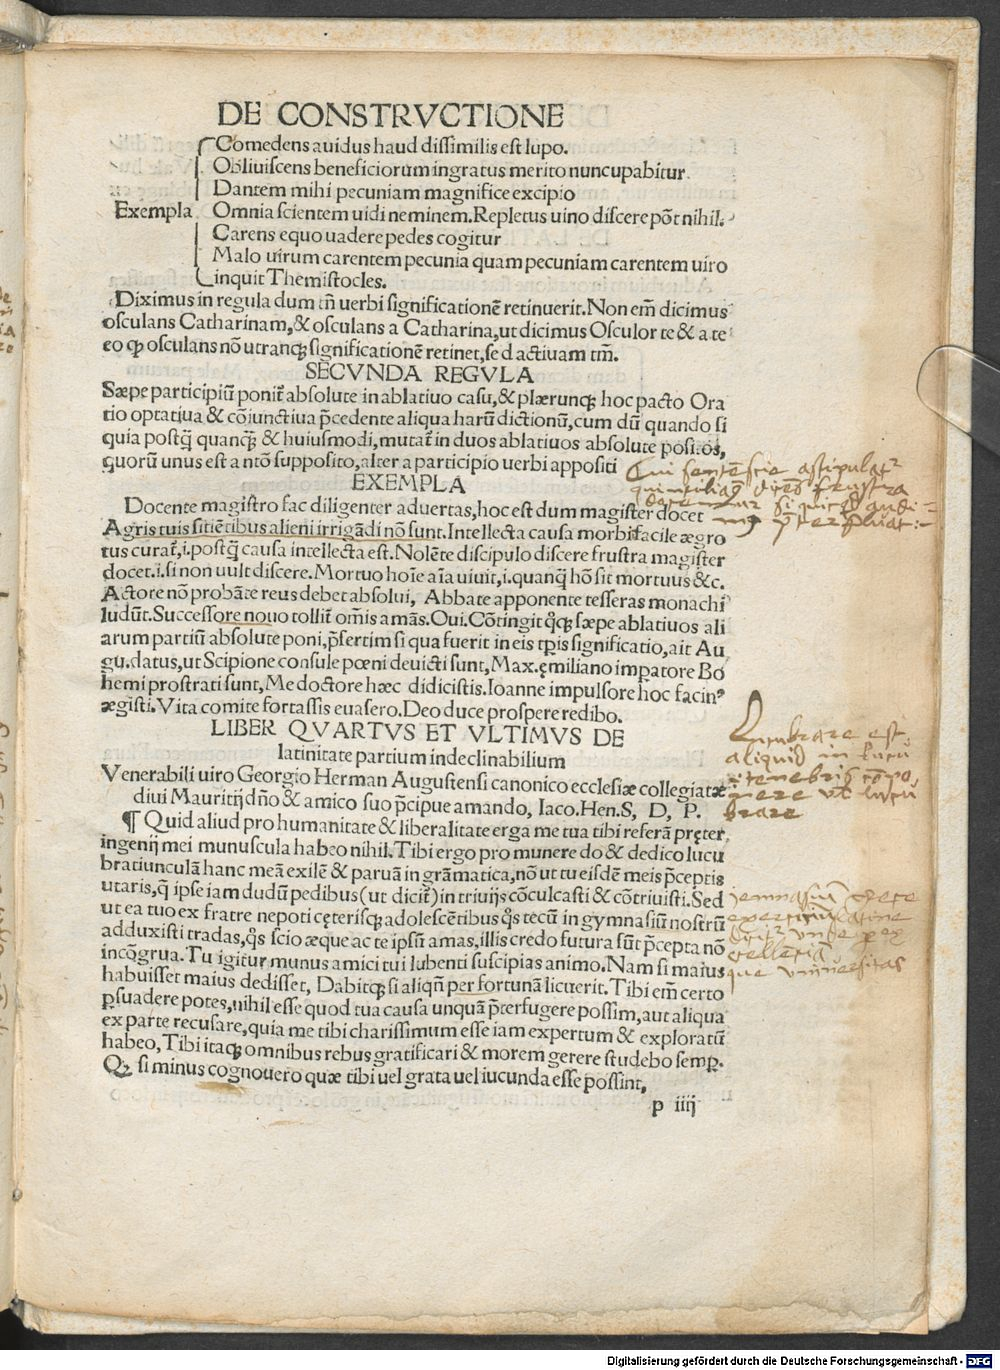 DE CONSTRVCTIONE
Comedens auidus haud dissimilis est lupo.
Obliuiscens beneficiorum ingratus merito nuncupabitur.
Dantem mihi pecuniam magnifice excipio
Exempla Omnia scientem uidi neminem. Repletus uino discere põt nihil.
Carens equo uadere pedes cogitur
Malo uirum carentem pecunia quam pecuniam carentem uiro
inquit Themistocles.
Diximus in regula dum tñ uerbi significationẽ retinuerit. Non em̃ dicimus
osculans Catharinam, & osculans a Catharina, ut dicimus Osculor te & a te
eo ꝙ osculans nõ utranqꝫ significationẽ retinet, sed actiuam tm̃.
SECVNDA REGVLA
Sæpe participiũ ponit̃ absolute in ablatiuo casu, & plærunqꝫ hoc pacto Ora
tio optatiua & cõiunctiua p̃cedente aliqua harũ dictionũ, cum dũ quando si
quia postq̃ quanq̃ & huiusmodi, mutat̃ in duos ablatiuos absolute positos,
quorũ unus est a ntõ supposito, alter a participio uerbi appositi
EXEMPLA
Docente magistro fac diligenter aduertas, hoc est dum magister docet
Agris tuis sitiẽtibus alieni irrigãdi nõ sunt. Intellecta causa morbi facile ægro
tus curat̃, i. postq̃ causa intellecta est. Nolẽte discipulo discere frustra magister
docet. i. si non uult discere. Mortuo hoĩe aĩa uiuit, i. quanq̃ hõ sit mortuus &c.
Actore nõ probãte reus debet absolui, Abbate apponente tesseras monachi
ludũt. Successore nouo tollit̃ om̃is amãs. Oui. Cõtingit q̊qꝫ sæpe ablatiuos ali
arum partiũ absolute poni, p̃sertim si qua fuerit in eis tp̃is significatio, ait Au
gu. datus, ut Scipione consule pœni deuicti sunt, Max. ęmiliano imꝑatore Bo
hemi prostrati sunt, Me doctore hæc didicistis. Ioanne impulsore hoc facinꝰ
ægisti. Vita comite fortassis euasero. Deo duce prospere redibo.
LIBER QVARTVS ET VLTIMVS DE
latinitate partium indeclinabilium
Venerabili uiro Georgio Herman Augustensi canonico ecclesiæ collegiatæ
diui Mauritij dño & amico suo p̃cipue amando, Iaco. Hen. S, D, P.
¶ Quid aliud pro humanitate & liberalitate erga me tua tibi referã pręter
ingenij mei munuscula habeo nihil. Tibi ergo pro munere do & dedico lucu
bratiunculã hanc meã exilẽ & paruã in grãmatica, nõ ut tu eisdẽ meis p̃ceptis
utaris, q̃ ipse iam dudũ pedibus (ut dicit̃) in triuijs cõculcasti & cõtriuisti. Sed
ut ea tuo ex fratre nepoti cęterisqꝫ adolescẽtibus q̊s tecũ in gymnasiũ nostrũ
adduxisti tradas, q̊s scio æque ac te ipsũ amas, illis credo futura sũt p̃cepta nõ
incõgrua. Tu igitur munus amici tui lubenti suscipias animo. Nam si maius
habuisset maius dedisset, Dabitqꝫ si aliqñ per fortunã licuerit. Tibi em̃ certo
ꝑsuadere potes, nihil esse quod tua causa unquã p̃terfugere possim, aut aliqua
ex parte recusare, quia me tibi charissimum esse iam expertum & exploratũ
habeo, Tibi itaqꝫ omnibus rebus gratificari & morem gerere studebo semꝑ.
Qꝫ si minus cognouero quæ tibi uel grata uel iucunda esse possint,
p iiij
Cui sentẽcie astipulat̃
Lucubrare est
aliquid in lucu
tenebris cõpo
nere vt lucu
brare
Digitalisierung gefördert durch die Deutsche Forschungsgemeinschaft - DFG